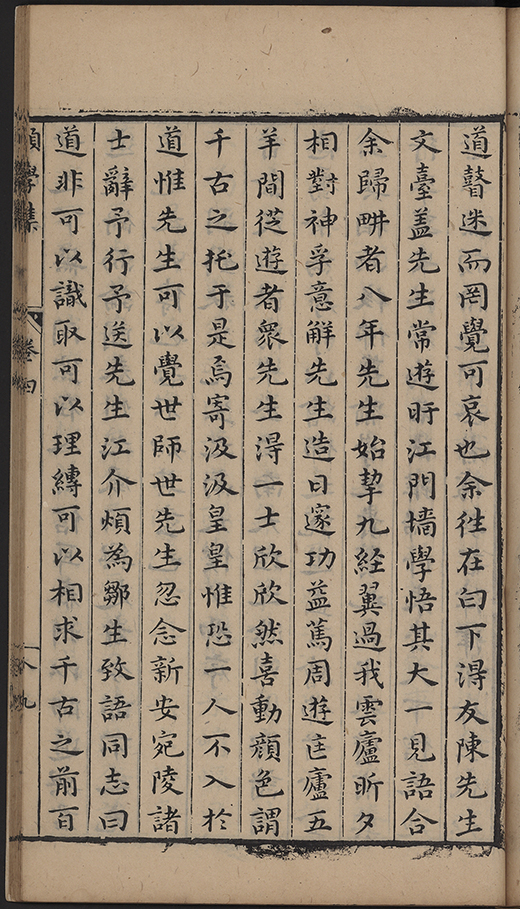 道瞽迷而罔覺可哀也余徃在白下淂友陳先生
文臺盖先生常遊盱江門墻學悟其大一見語合
余歸畊者八年先生始挈九經翼過我雲廬昕夕
相對神孚意解先生造日邃功益篤周遊匡廬五
羊間從遊者衆先生淂一士欣欣然喜動顔色謂
千古之托于是焉寄汲汲皇皇惟恐一人不入扵
道惟先生可以覺世師世先生忽念新安宛陵諸
士辭予行予送先生江介煩為鄒生致語同志曰
道非可以識取可以理縳可以相求千古之前百
學集
卷四
八九